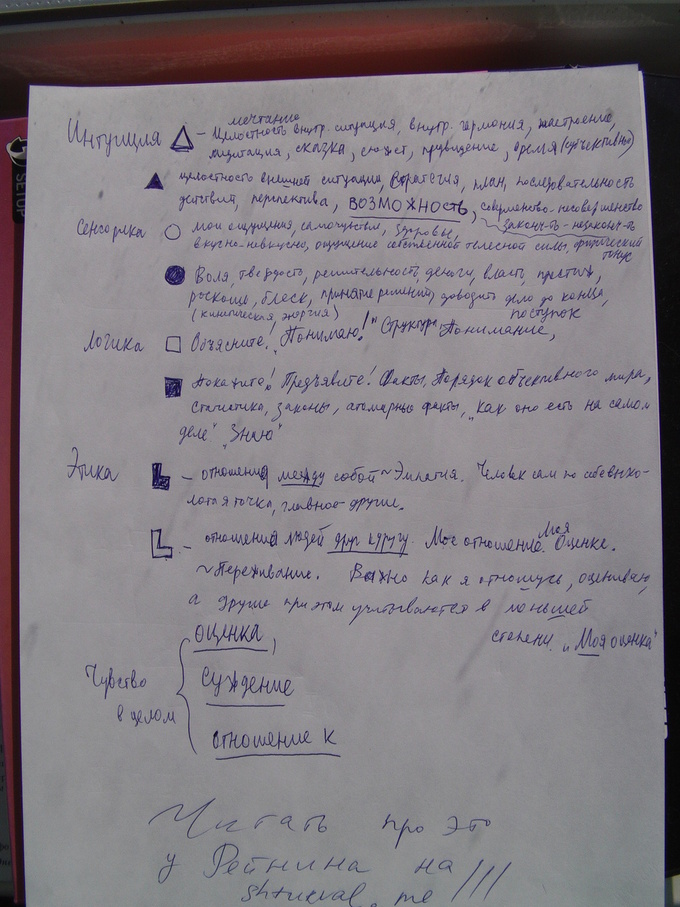 мечтание
Интуиция △ – Целостность внутр. ситуация, внутр. гармония, настроение,
медитация, сказка, сюжет, предвидение, время (субъективно)
▲ целостность внешней ситуации, стратегия, план, последовательность
действий, перспектива, ВОЗМОЖНОСТЬ, совершенство-несовершенство
законч-ть - незаконч-ть
Сенсорика ○ мои ощущения, самочувствие, здоровье,
вкусно-невкусно, ощущение собственной телесной силы, физический
тонус
● Воля, твердость, решительность, деньги, власть, престиж,
роскошь, блеск, принятие решений, доводить дело до конца,
(кинетическая энергия) поступок
Логика □ Объясните! „Понимаю!" Структура, Понимание,
■ Докажите! Предъявите! Факты, Порядок объективного мира,
статистика, законы, атомарные факты, „как оно есть на самом
деле" „Знаю"
Этика – отношения между собой ~ Эмпатия. Человек сам по себе
точка, главное - другие.
– отношения людей друг к другу. Мое отношение. Моя Оценка.
~ Переживание. Важно как я отношусь, оцениваю,
а другие при этом учитываются в меньшей
степени. „Моя оценка"
оценка,
Чувство в целом суждение
отношение к
Читать про это
у Рейнина на
me!!!
SETUP